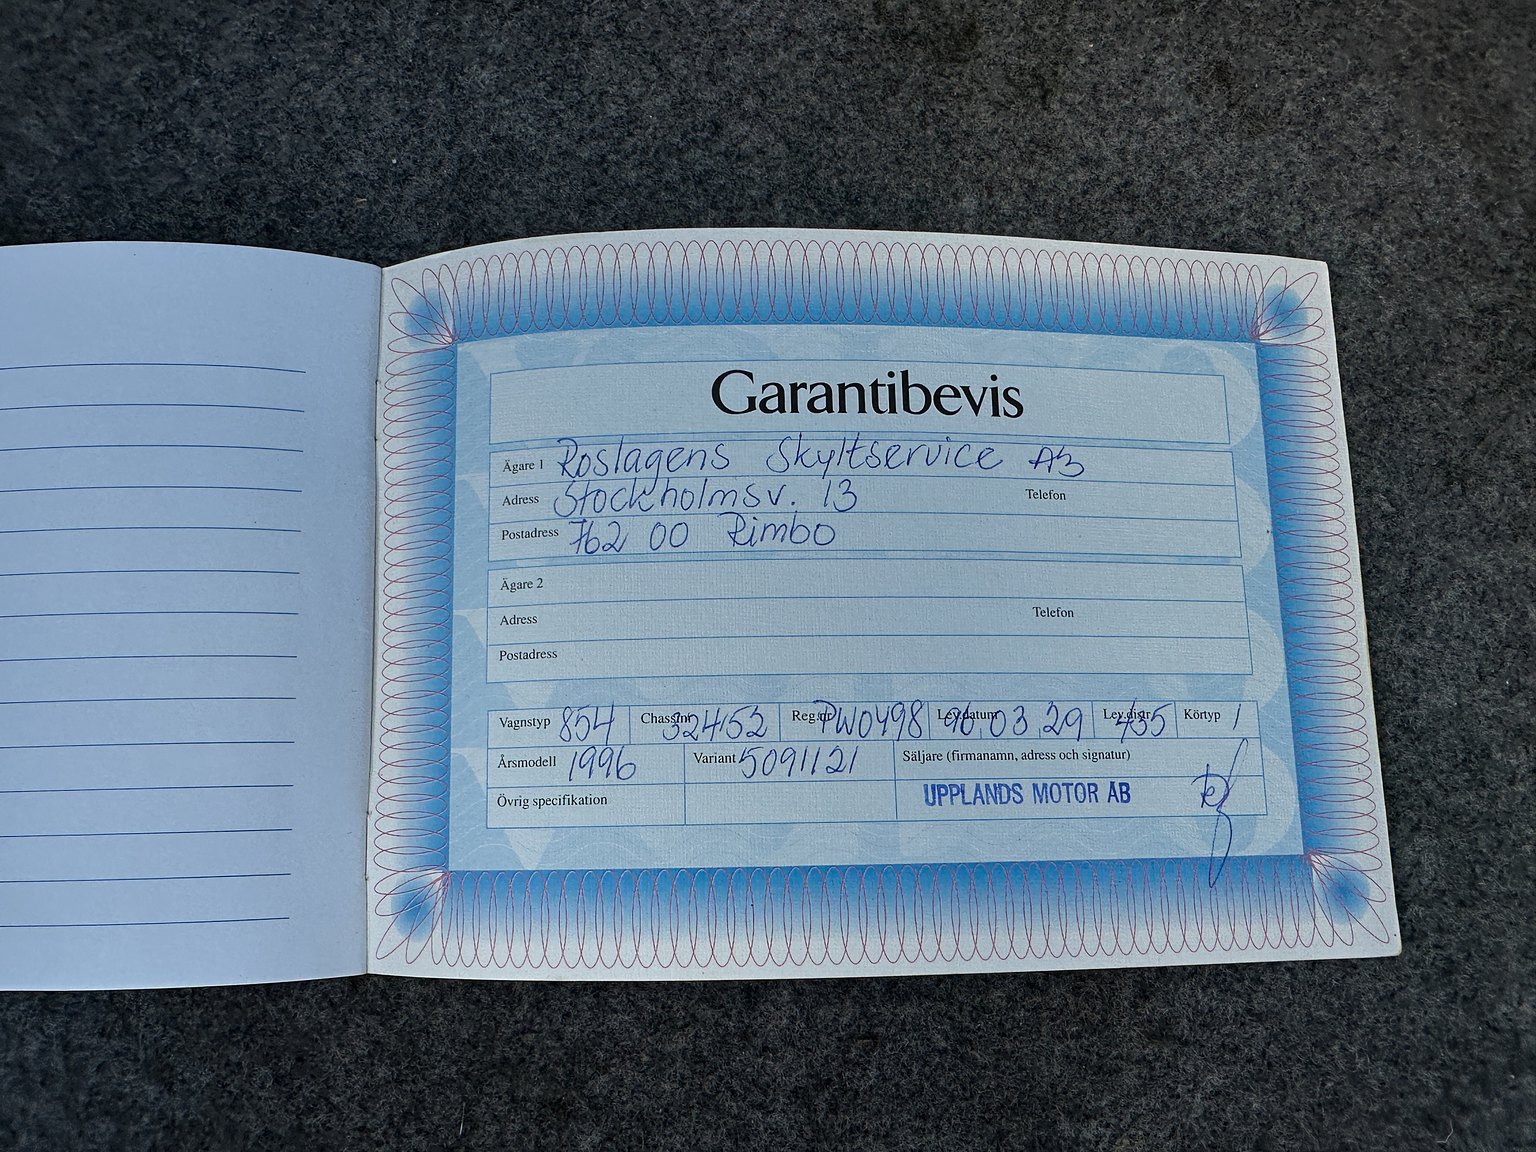 Garantibevis
Ägare 1 Roslagens Skyltservice AB
Adress Stockholmsv. 13 Telefon
Postadress 762 00 Rimbo
Ägare 2
Adress Telefon
Postadress
Vagnstyp 854 Chassinr 324152 Reg.nr PWO498 Lev.datum 96.03.29 Lev.distr. 435 Körtyp 1
Årsmodell 1996 Variant 5091121 Säljare (firmanamn, adress och signatur)
Övrig specifikation UPPLANDS MOTOR AB